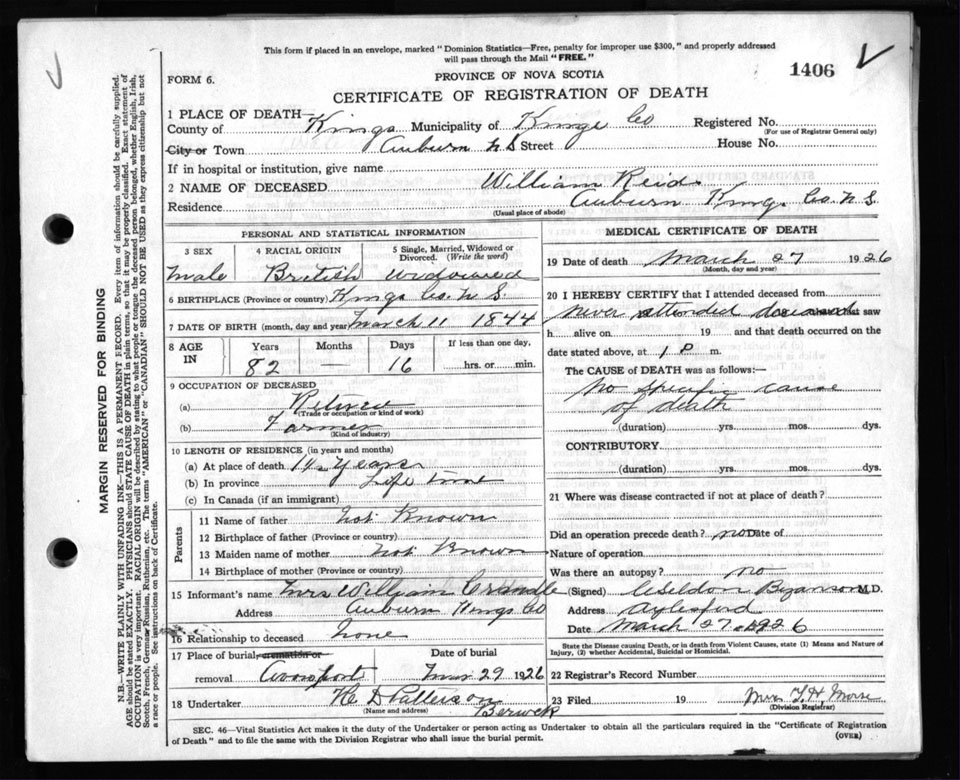 This form if placed in an envelope, marked "Dominion Statistics—Free, penalty for improper use $300," and properly addressed
will pass through the Mail "FREE."
FORM 6.
PROVINCE OF NOVA SCOTIA
1406
CERTIFICATE OF REGISTRATION OF DEATH
1 PLACE OF DEATH—
County of Kings Municipality of Kings Co Registered No.
(For use of Registrar General only)
City or Town Auburn N S Street House No.
If in hospital or institution, give name
2 NAME OF DECEASED William Reid
Residence Auburn Kings Co. N. S.
(Usual place of abode)
PERSONAL AND STATISTICAL INFORMATION
3 SEX 4 RACIAL ORIGIN 5 Single, Married, Widowed or
Divorced. (Write the word)
Male British Widowed
6 BIRTHPLACE (Province or country) Kings Co. N S.
7 DATE OF BIRTH (month, day and year) March 11 1844
8 AGE IN Years Months Days If less than one day,
82 — 16 hrs. or min.
9 OCCUPATION OF DECEASED
(a) Retired
(Trade or occupation or kind of work)
(b) Farmer
(Kind of industry)
10 LENGTH OF RESIDENCE (in years and months)
(a) At place of death Years
(b) In province Life time
(c) In Canada (if an immigrant)
Parents
11 Name of father Not Known
12 Birthplace of father (Province or country)
13 Maiden name of mother Not Known
14 Birthplace of mother (Province or country)
15 Informant's name Mrs William Crandle
Address Auburn Kings Co
16 Relationship to deceased None
17 Place of burial, cremation or Date of burial
removal Avonport Mar 29 1926
18 Undertaker H D
(Name and address) Berwick
MEDICAL CERTIFICATE OF DEATH
19 Date of death March 27 1926
(Month, day and year)
20 I HEREBY CERTIFY that I attended deceased from
never attended deceased that saw
h alive on 19 and that death occurred on the
date stated above, at 1 P m.
The CAUSE OF DEATH was as follows:—
No specific cause
of death
(duration) yrs. mos. dys.
CONTRIBUTORY
(duration) yrs. mos. dys.
21 Where was disease contracted if not at place of death?
Did an operation precede death? no Date of
Nature of operation
Was there an autopsy? no
(Signed) M.D.
Address Aylesford
Date March 27 1926
State the Disease causing Death, or in death from Violent Causes, state (1) Means and Nature of
Injury, (2) whether Accidental, Suicidal or Homicidal.
22 Registrar's Record Number
23 Filed 19 Mrs T. H. Morse
(Division Registrar)
SEC. 46—Vital Statistics Act makes it the duty of the Undertaker or person acting as Undertaker to obtain all the particulars required in the "Certificate of Registration
of Death" and to file the same with the Division Registrar who shall issue the burial permit.
(OVER)
MARGIN RESERVED FOR BINDING
N.B.—WRITE PLAINLY WITH UNFADING INK—THIS IS A PERMANENT RECORD. Every item of information should be carefully supplied.
AGE should be stated EXACTLY. PHYSICIANS should STATE CAUSE OF DEATH in plain terms, so that it may be properly classified. Exact statement of
OCCUPATION is very important. RACIAL ORIGIN will be described by stating to what people or tongue the deceased person belonged, whether English, Irish,
Scotch, French, German, Russian, Ruthenian, etc. The terms "AMERICAN" or "CANADIAN" SHOULD NOT BE USED as they express citizenship but not
a race or people. See instructions on back of Certificate.